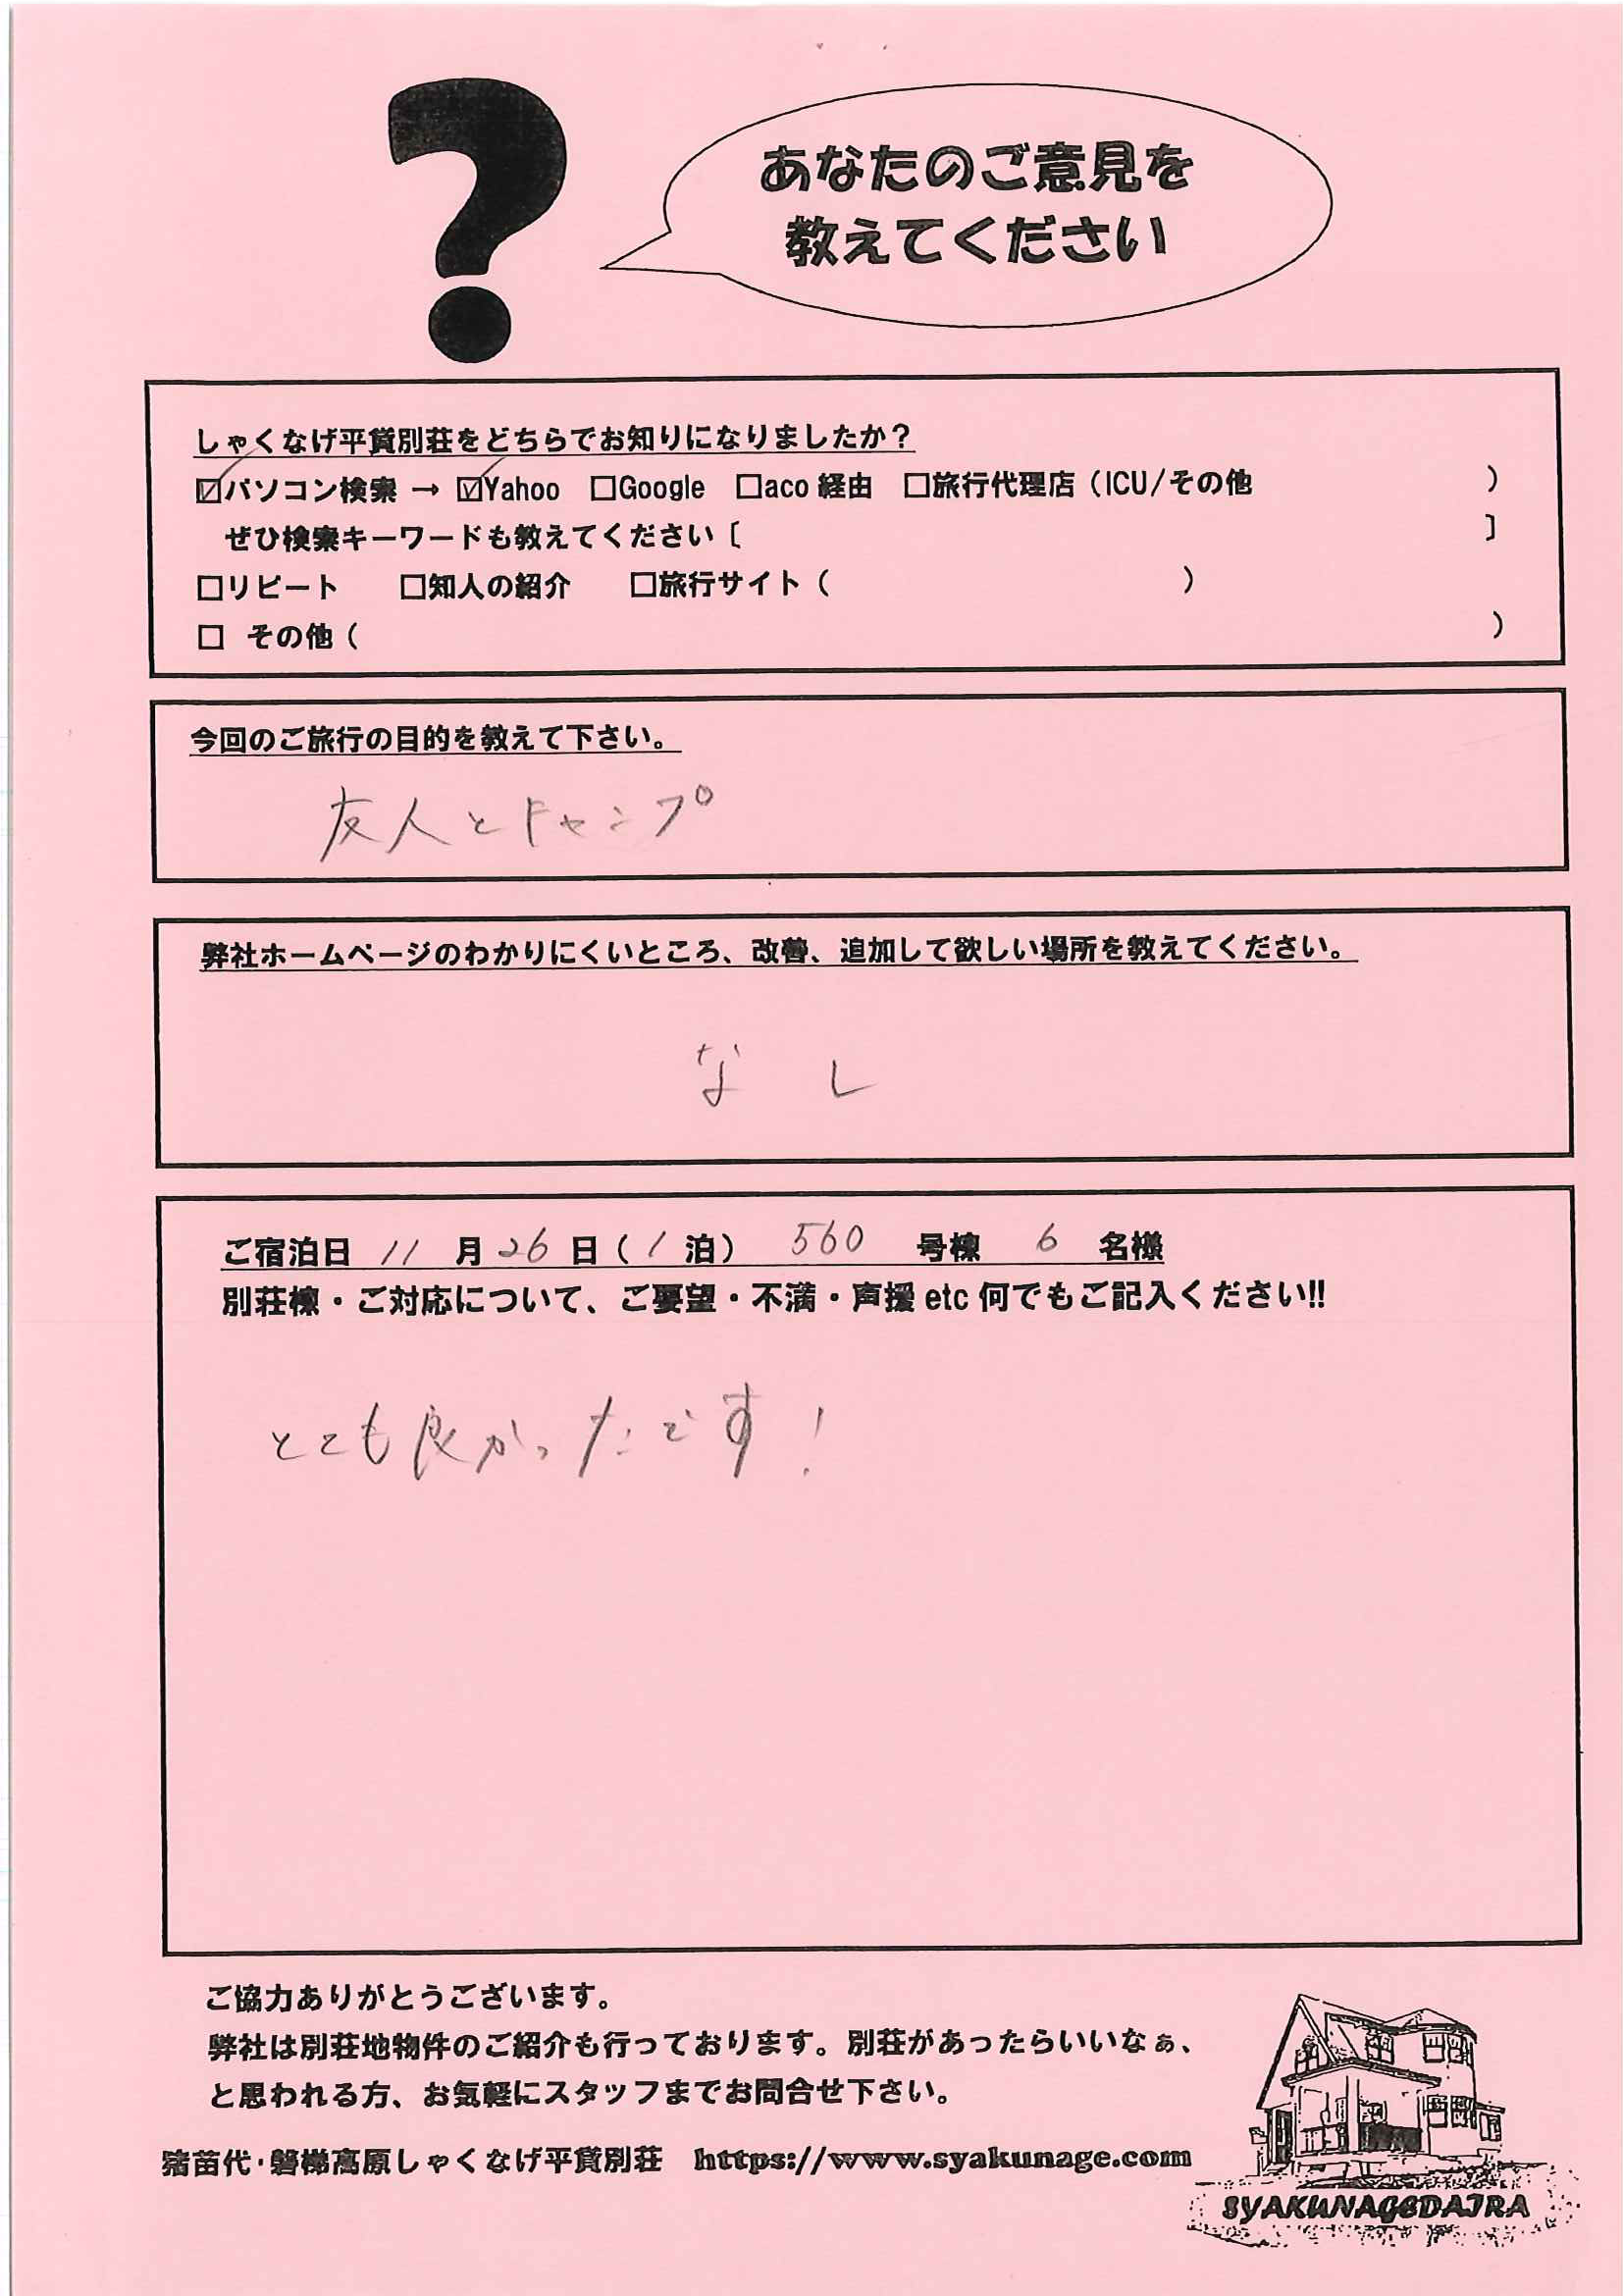 あなたのご意見を
教えてください
しゃくなげ平貸別荘をどちらでお知りになりましたか？
☑パソコン検索 → ☑Yahoo □Google □aco 経由 □旅行代理店（ICU/その他 ）
ぜひ検索キーワードも教えてください〔 〕
□リピート □知人の紹介 □旅行サイト（ ）
□ その他（ ）
今回のご旅行の目的を教えて下さい。
友人とキャンプ
弊社ホームページのわかりにくいところ、改善、追加して欲しい場所を教えてください。
なし
ご宿泊日 11 月 26 日（1 泊） 560 号棟 6 名様
別荘棟・ご対応について、ご要望・不満・声援 etc 何でもご記入ください!!
とても良かったです！
ご協力ありがとうございます。
弊社は別荘地物件のご紹介も行っております。別荘があったらいいなぁ、
と思われる方、お気軽にスタッフまでお問合せ下さい。
猪苗代・磐梯高原しゃくなげ平貸別荘 https://www.syakunage.com
SYAKUNAGEDAIRA